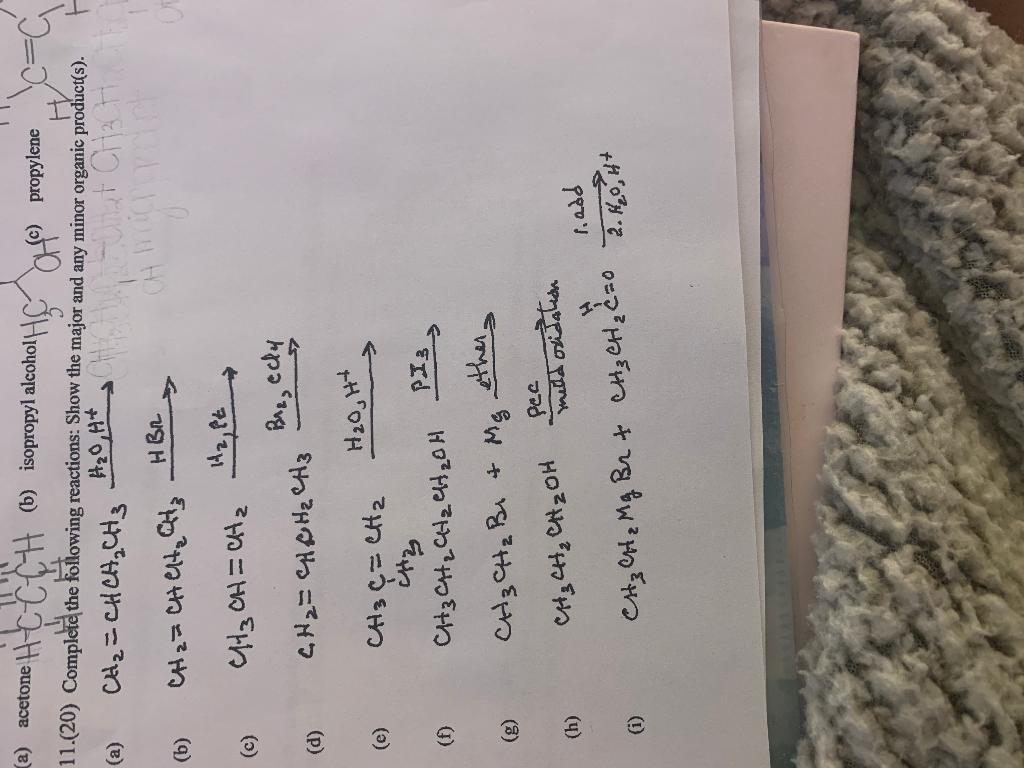 (a) acetone H-C-C-C-H (b) isopropyl alcohol H₃C OH (c) propylene H C=C
11.(20) Complete the following reactions: Show the major and any minor organic product(s).
(a) CH₂=CHCH₂CH₃ H₂O,H⁺ →
(b) CH₂=CHCH₂CH₃ HBr →
(c) CH₃CH=CH₂ H₂,Pt →
(d) CH₂=CHCH₂CH₃ Br₂, CCl₄ →
(e) CH₃C=CH₂ H₂O,H⁺ →
CH₃
(f) CH₃CH₂CH₂CH₂OH PI₃ →
(g) CH₃CH₂Br + Mg ether →
(h) CH₃CH₂CH₂OH PCC → mild oxidation
(i) CH₃CH₂MgBr + CH₃CH₂C=O 1. add → 2. H₂O, H⁺
H